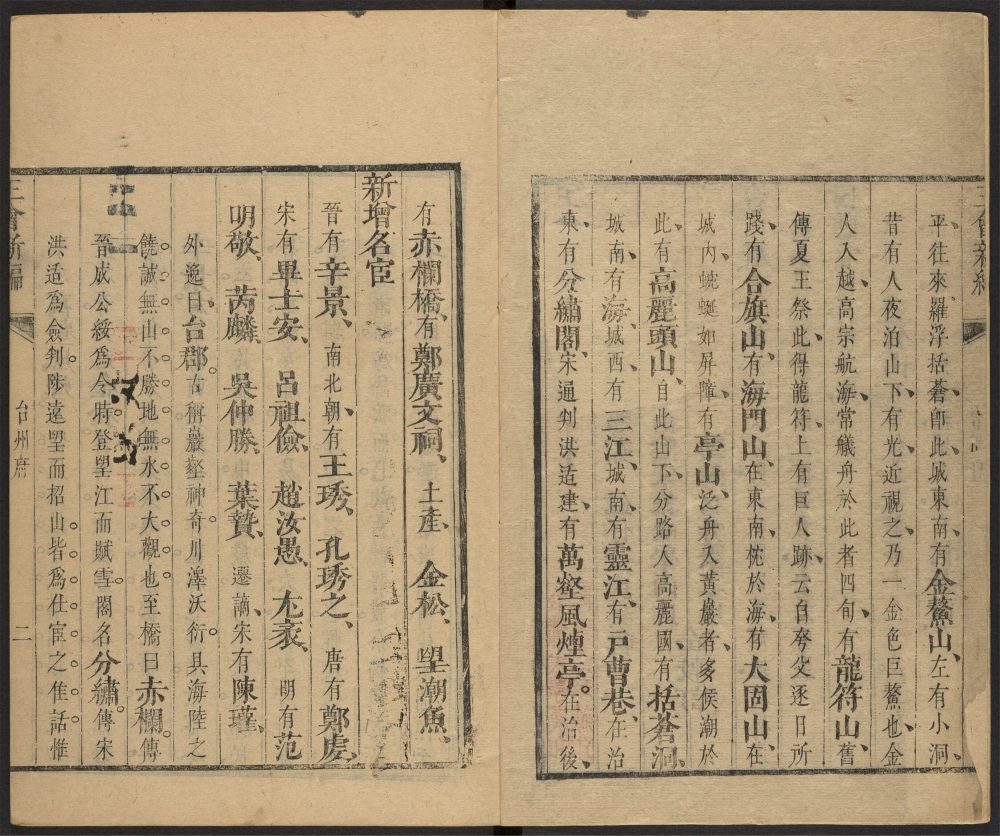 平往來羅浮括蒼卽此城東南有金鰲山左有小洞
昔有人夜泊山下有光近視之乃一金色巨鰲也金
人入越高宗航海常艤舟於此者四旬有龍符山舊
傳夏王祭此得龍符上有巨人跡云自夸父逐日所
踐有合旗山有海門山在東南枕於海有大固山在
城內蜿蜒如屏障有亭山泛舟入黃巖者多候潮於
此有高麗頭山自此山下分路人高麗國有括蒼洞
城南有海城西有三江城南有靈江有戸曹巷在治
東有分繡閣宋通判洪适建有萬壑風煙亭在治後
有赤欄橋有鄭廣文祠土產金松望潮魚
新增名宦
晉有辛景南北朝有王琇孔琇之唐有鄭虔
宋有畢士安呂祖儉趙汝愚尤袤明有范
明敬芮麟吳仲勝葉贄遷謫宋有陳瓘
外逸曰台郡古稱巖壑神奇川澤沃衍具海陸之
饒誠無山不勝地無水不大觀也至橋曰赤欄傳
晉成公綏爲令時登望江而賦雪閣名分繡傳宋
洪适爲僉判陟遠望而招山皆爲仕宦之佳話惟
台州府
二